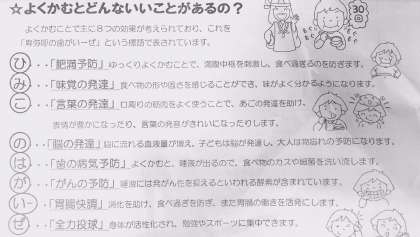 ☆よくかむとどんないいことがあるの？
よくかむことで主に８つの効果が考えられており、これを
「卑弥呼の歯がいーぜ」という標語で表されています。
ひ・・「肥満予防」ゆっくりよくかむことで、満腹中枢を刺激し、食べ過ぎるのを防ぎます。
み・・「味覚の発達」食べ物の形や固さを感じることができ、味がよく分かるようになります。
こ・・「言葉の発達」口周りの筋肉をよく使うことで、あごの発達を助け、
表情が豊かになったり、言葉の発音がきれいになったりします。
の・・「脳の発達」脳に流れる血液量が増え、子どもは脳が発達し、大人は物忘れの予防になります。
は・・「歯の病気予防」よくかむと、唾液が出るので、食べ物のカスや細菌を洗い流します。
が・・「がんの予防」唾液には発がん性を抑えるといわれる酵素が含まれています。
いー・・「胃腸快調」消化を助け、食べ過ぎを防ぎ、また胃腸の働きを活発にします。
ぜ・・「全力投球」身体が活性化され、勉強やスポーツに集中できます。
30